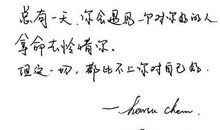 总有一天，你会遇见一个对你好的人
拿命去怜惜你。
但这一切，都比不上你对自己好。